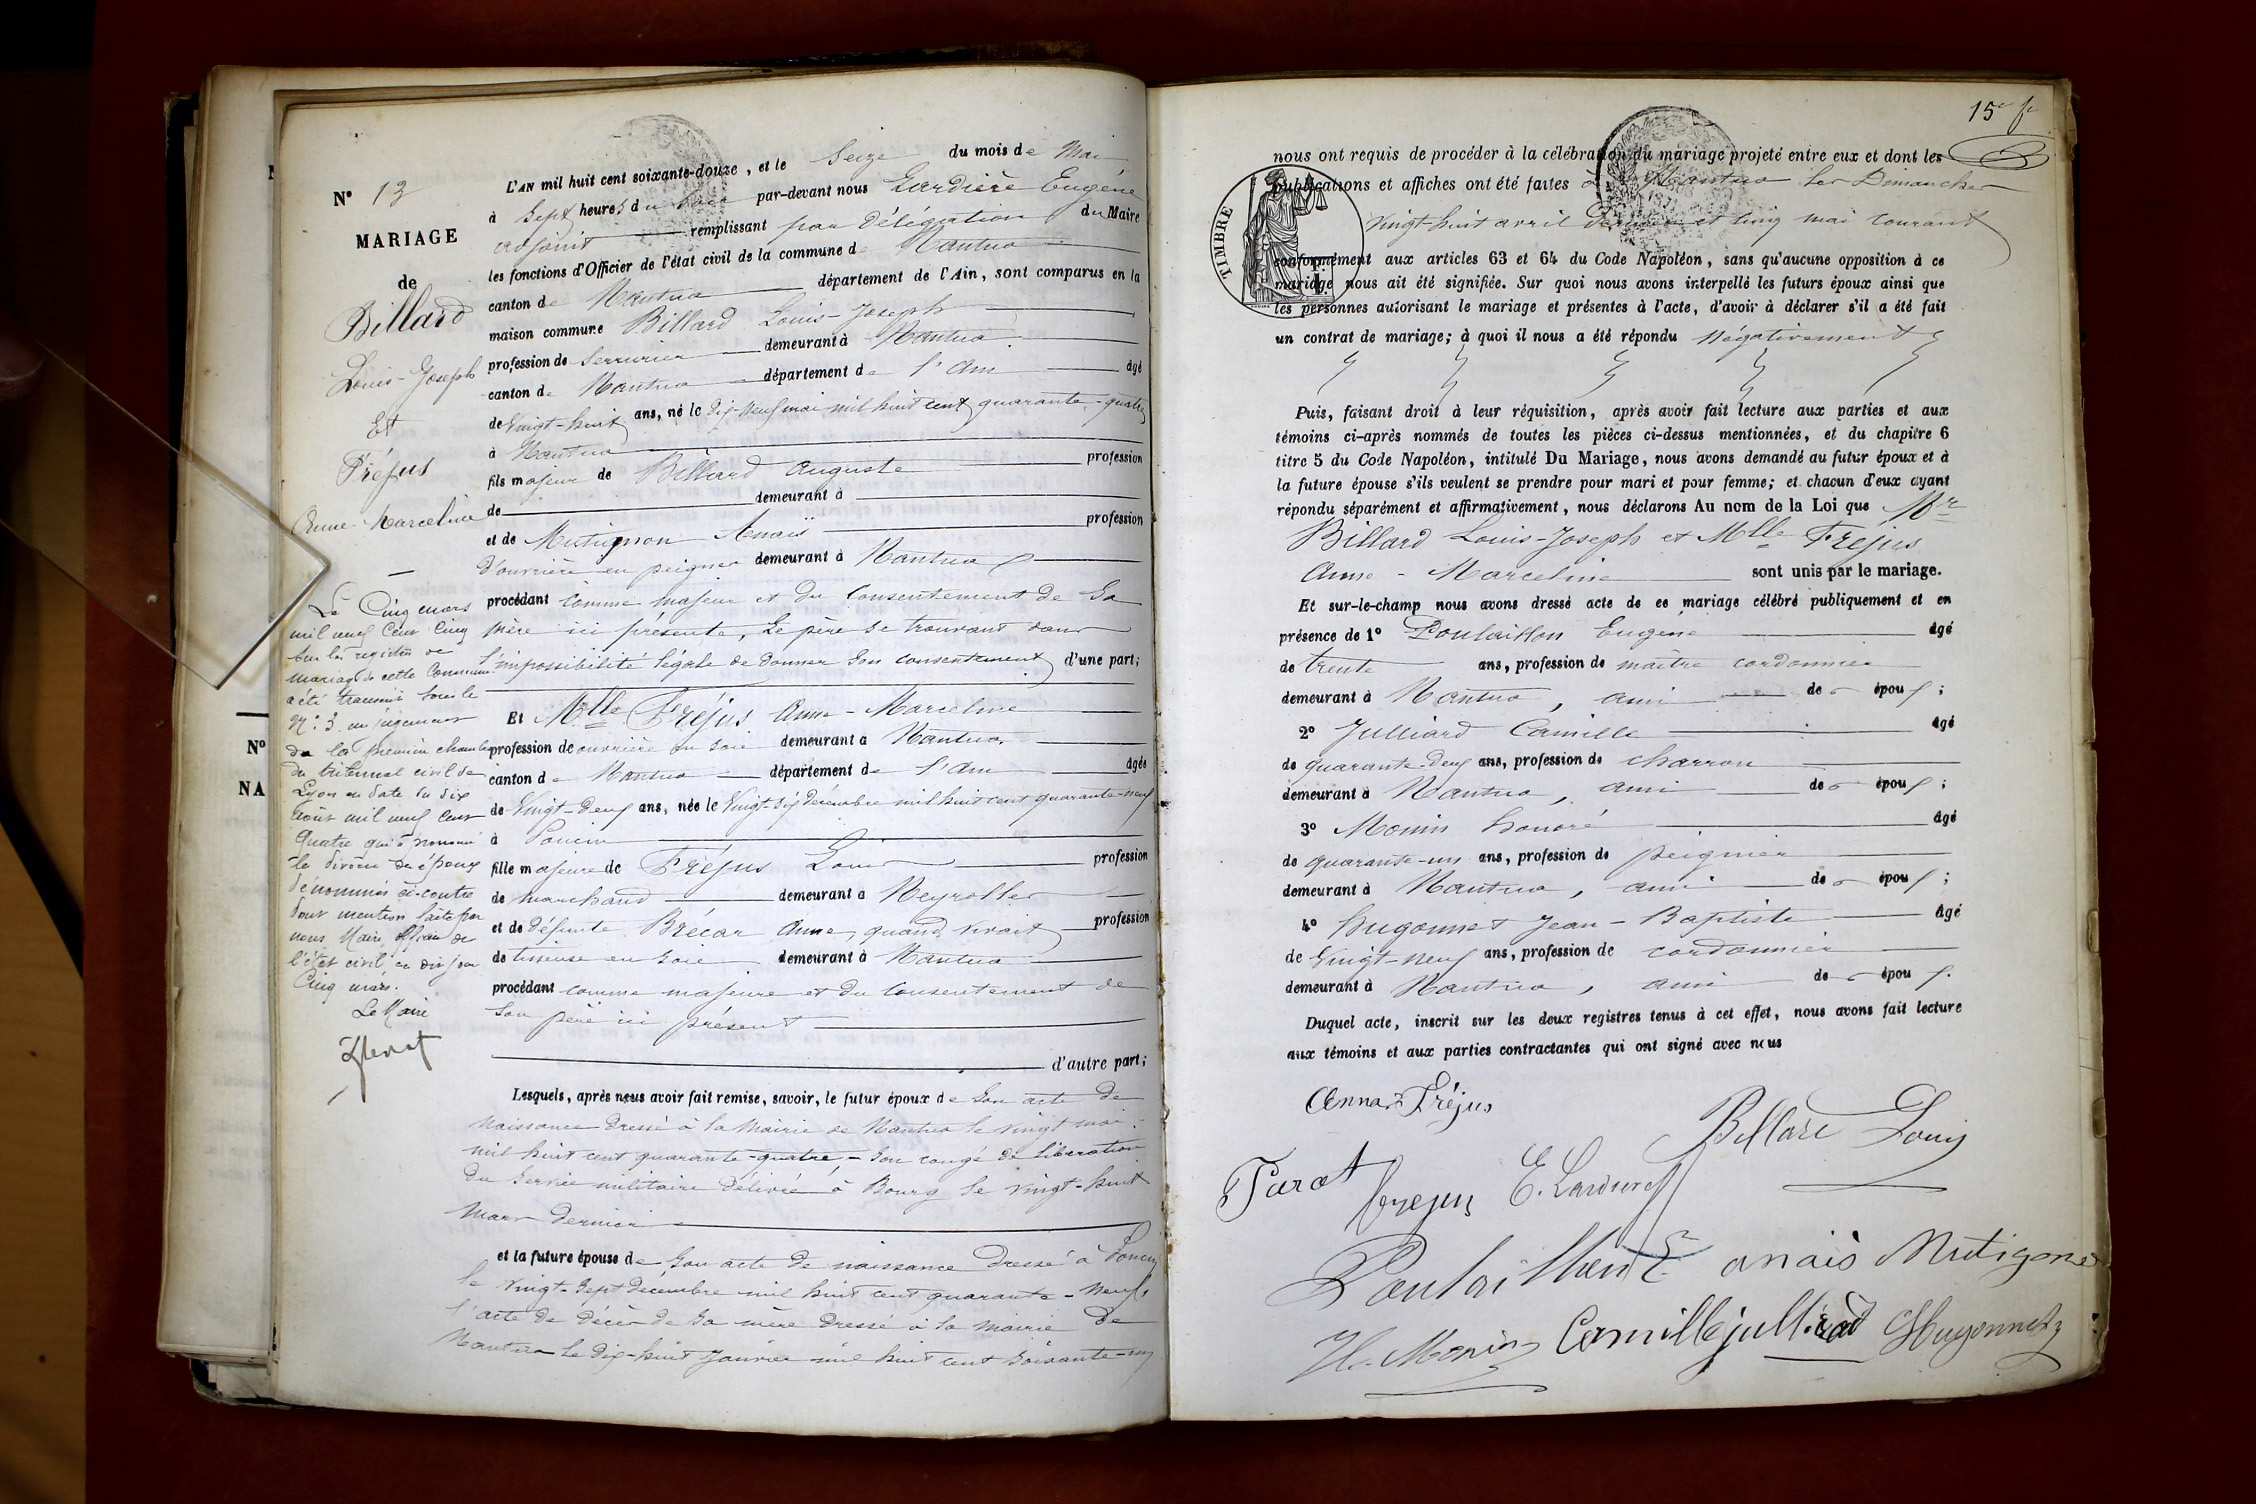 N° 13
MARIAGE
de
Billard
Louis-Joseph
Et
Fréjus
Anne-Marceline
Le Cinq mars
mil neuf Cent Cinq
sur les registres de
mariage de cette Commune
a été transcrit sous le
N°: 3 un jugement
de la première chambre
du tribunal civil de
Lyon en date du dix
août mil neuf cent
quatre qui a prononcé
le divorce des époux
dénommés ci-contre
dont mention faite par
nous Maire, officier de
l'état civil, ce dit jour
Cinq mars.
Le Maire
N°
NA
L'AN mil huit cent soixante-douze, et le Seize du mois de Mai
à Sept heures du par-devant nous Lardière Eugène
adjoint remplissant par Délégation du Maire
les fonctions d'Officier de l'état civil de la commune de Nantua
canton de Nantua département de l'Ain, sont comparus en la
maison commune Billard Louis-Joseph
profession de Serrurier demeurant à Nantua
canton de Nantua département de l'Ain âgé
de Vingt-huit ans, né le Dix-Neuf mai mil huit cent quarante-quatre
à Nantua
fils majeur de Billard Auguste profession
de demeurant à
et de Mutignon Anaïs profession
d'ouvrière en peignes demeurant à Nantua
procédant comme majeur et du Consentement de Sa
mère ici présente, Le père se trouvant dans
l'impossibilité légale de donner Son consentement d'une part;
Et Mlle Fréjus Anne-Marceline
profession de ouvrière en Soie demeurant a Nantua
canton de Nantua département de l'Ain âgée
de Vingt-Deux ans, née le Vingt-Six Décembre mil huit cent quarante-neuf
à Poncin
fille majeure de Fréjus Louis profession
de marchand demeurant a Neyrolles
et de défunte Brécar Anne, quand vivait profession
de tisseuse en Soie demeurant à Nantua
procédant comme majeure et du Consentement de
Son père ici présent
d'autre part;
Lesquels, après nous avoir fait remise, savoir, le futur époux de Son acte de
naissance Dressé à la Mairie de Nantua le vingt mai
mil huit cent quarante-quatre - Son congé de libération
du Service militaire délivré à Bourg le Vingt-huit
Mars dernier
et la future épouse de Son acte de naissance Dressé à Poncin
le Vingt-Sept Décembre mil huit cent quarante-neuf,
l'acte de Décès de Sa mère Dressé à la Mairie de
Nantua le Dix-huit Janvier mil huit cent Soixante-un
15e f
nous ont requis de procéder à la célébration du mariage projeté entre eux et dont les
publications et affiches ont été faites à Nantua les Dimanches
Vingt-huit avril dernier et Cinq mai courant
TIMBRE
conformément aux articles 63 et 64 du Code Napoléon, sans qu'aucune opposition à ce
mariage nous ait été signifiée. Sur quoi nous avons interpellé les futurs époux ainsi que
les personnes autorisant le mariage et présentes à l'acte, d'avoir à déclarer s'il a été fait
un contrat de mariage; à quoi il nous a été répondu Négativement
Puis, faisant droit à leur réquisition, après avoir fait lecture aux parties et aux
témoins ci-après nommés de toutes les pièces ci-dessus mentionnées, et du chapitre 6
titre 5 du Code Napoléon, intitulé Du Mariage, nous avons demandé au futur époux et à
la future épouse s'ils veulent se prendre pour mari et pour femme; et chacun d'eux ayant
répondu séparément et affirmativement, nous déclarons Au nom de la Loi que Mr
Billard Louis-Joseph et Mlle Fréjus
Anne-Marceline sont unis par le mariage.
Et sur-le-champ nous avons dressé acte de ce mariage célébré publiquement et en
présence de 1° Poulaillon Eugène âgé
de trente ans, profession de maître cordonnier
demeurant à Nantua, ami de épou ;
2° Julliard Camille âgé
de quarante-deux ans, profession de charron
demeurant à Nantua, ami de épou ;
3° Monin honoré âgé
de quarante-un ans, profession de peignier
demeurant à Nantua, ami de épou ;
4° hugonnet Jean-Baptiste âgé
de Vingt-neuf ans, profession de cordonnier
demeurant à Nantua, ami de épou .
Duquel acte, inscrit sur les deux registres tenus à cet effet, nous avons fait lecture
aux témoins et aux parties contractantes qui ont signé avec nous
Anna Fréjus
Billard Louis
fréjus
Poulaillon E anaïs Mutigone
H. Monin Camille julliard Hugonnet